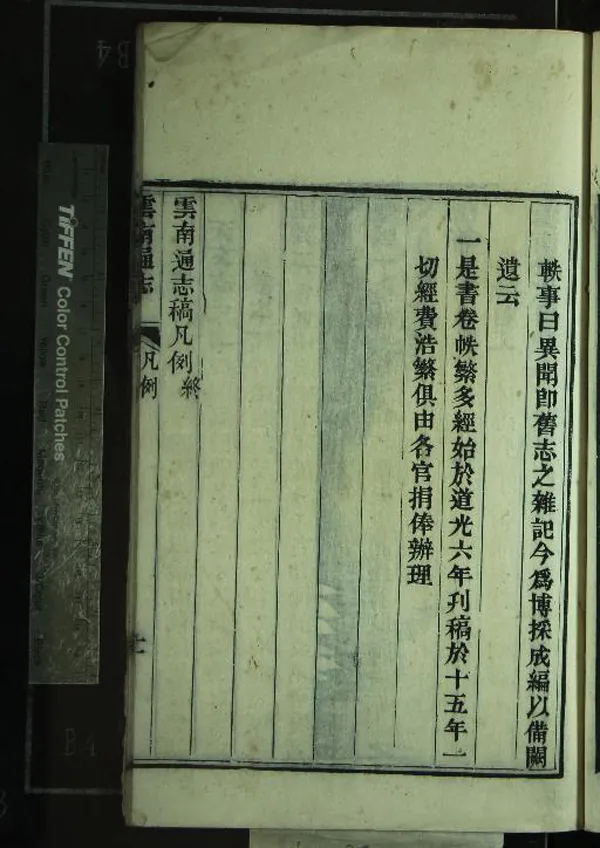 軼事曰異聞卽舊志之雜記今爲博採成編以備闕
遺云
一是書卷帙繁多經始於道光六年刋稿於十五年一
切經費浩繁俱由各官捐俸辦理
雲南通志稿凡例終
雲南通志
凡例
七
TIFFEN Color Control Patches
B4
B4